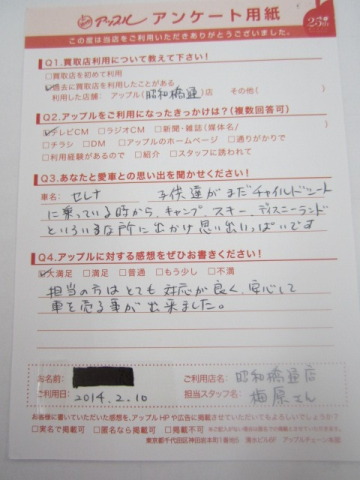 アップル アンケート用紙
25th
この度は当店をご利用いただきありがとうございました。
Q1.買取店利用について教えて下さい!
□買取店を初めて利用
☑過去に買取店を利用したことがある
利用した店舗 アップル(昭和橋通)店 その他( )
Q2.アップルをご利用になったきっかけは?(複数回答可)
☑テレビCM □ラジオCM □新聞・雑誌(媒体名/
□チラシ □DM □アップルのホームページ □通りがかりで
□利用経験があるので □紹介 □スタッフに誘われて
Q3.あなたと愛車との思い出を聞かせください!
車名: セレナ 子供達がまだチャイルドシート
に乗っている時から、キャンプ、スキー、ディズニーランド
といろいろな所に出かけ思い出いっぱいです
Q4.アップルに対する感想をぜひお書きください!
☑大満足 □満足 □普通 □もう少し □不満
担当の方はとても対応が良く、安心して
車を売る事が出来ました。
お名前:
ご利用店名: 昭和橋通店
ご利用日: 2014.2.10
担当スタッフ名: 梅原さん
お客様に書いていただいた感想を、アップルHPや広告に掲載させていただいてもよろしいでしょうか?
□実名で掲載可 □匿名なら掲載可 □掲載不可